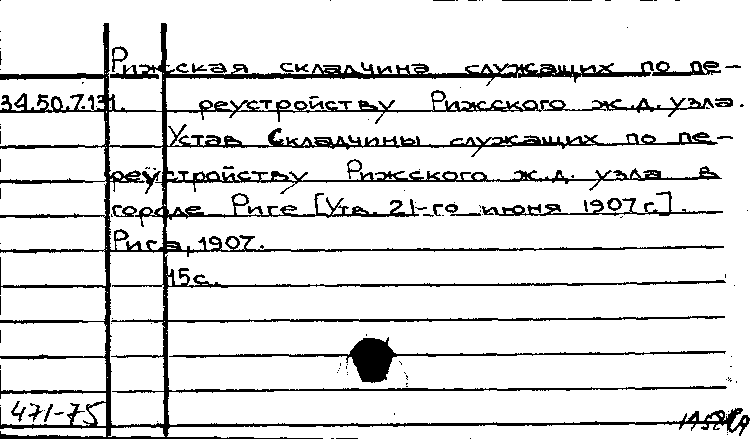 Рижская складчина служащих по пе-
34.50.7.131. реустройству Рижского ж.д. узла.
Устав Складчины служащих по пе-
реустройству Рижского ж.д. узла в
городе Риге [Утв. 21-го июня 1907 г.].
Рига, 1907.
15 с.
471-75